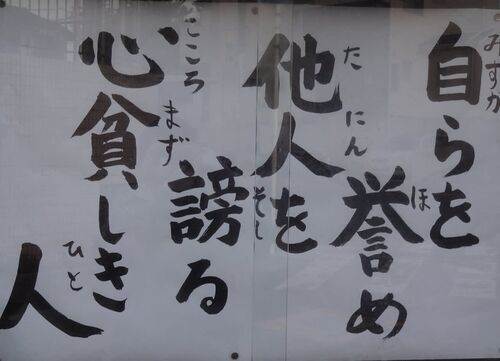 自らを
誉め
他人を
謗る
心貧しき
人
みずか
ほ
たにん
そし
こころまず
ひと